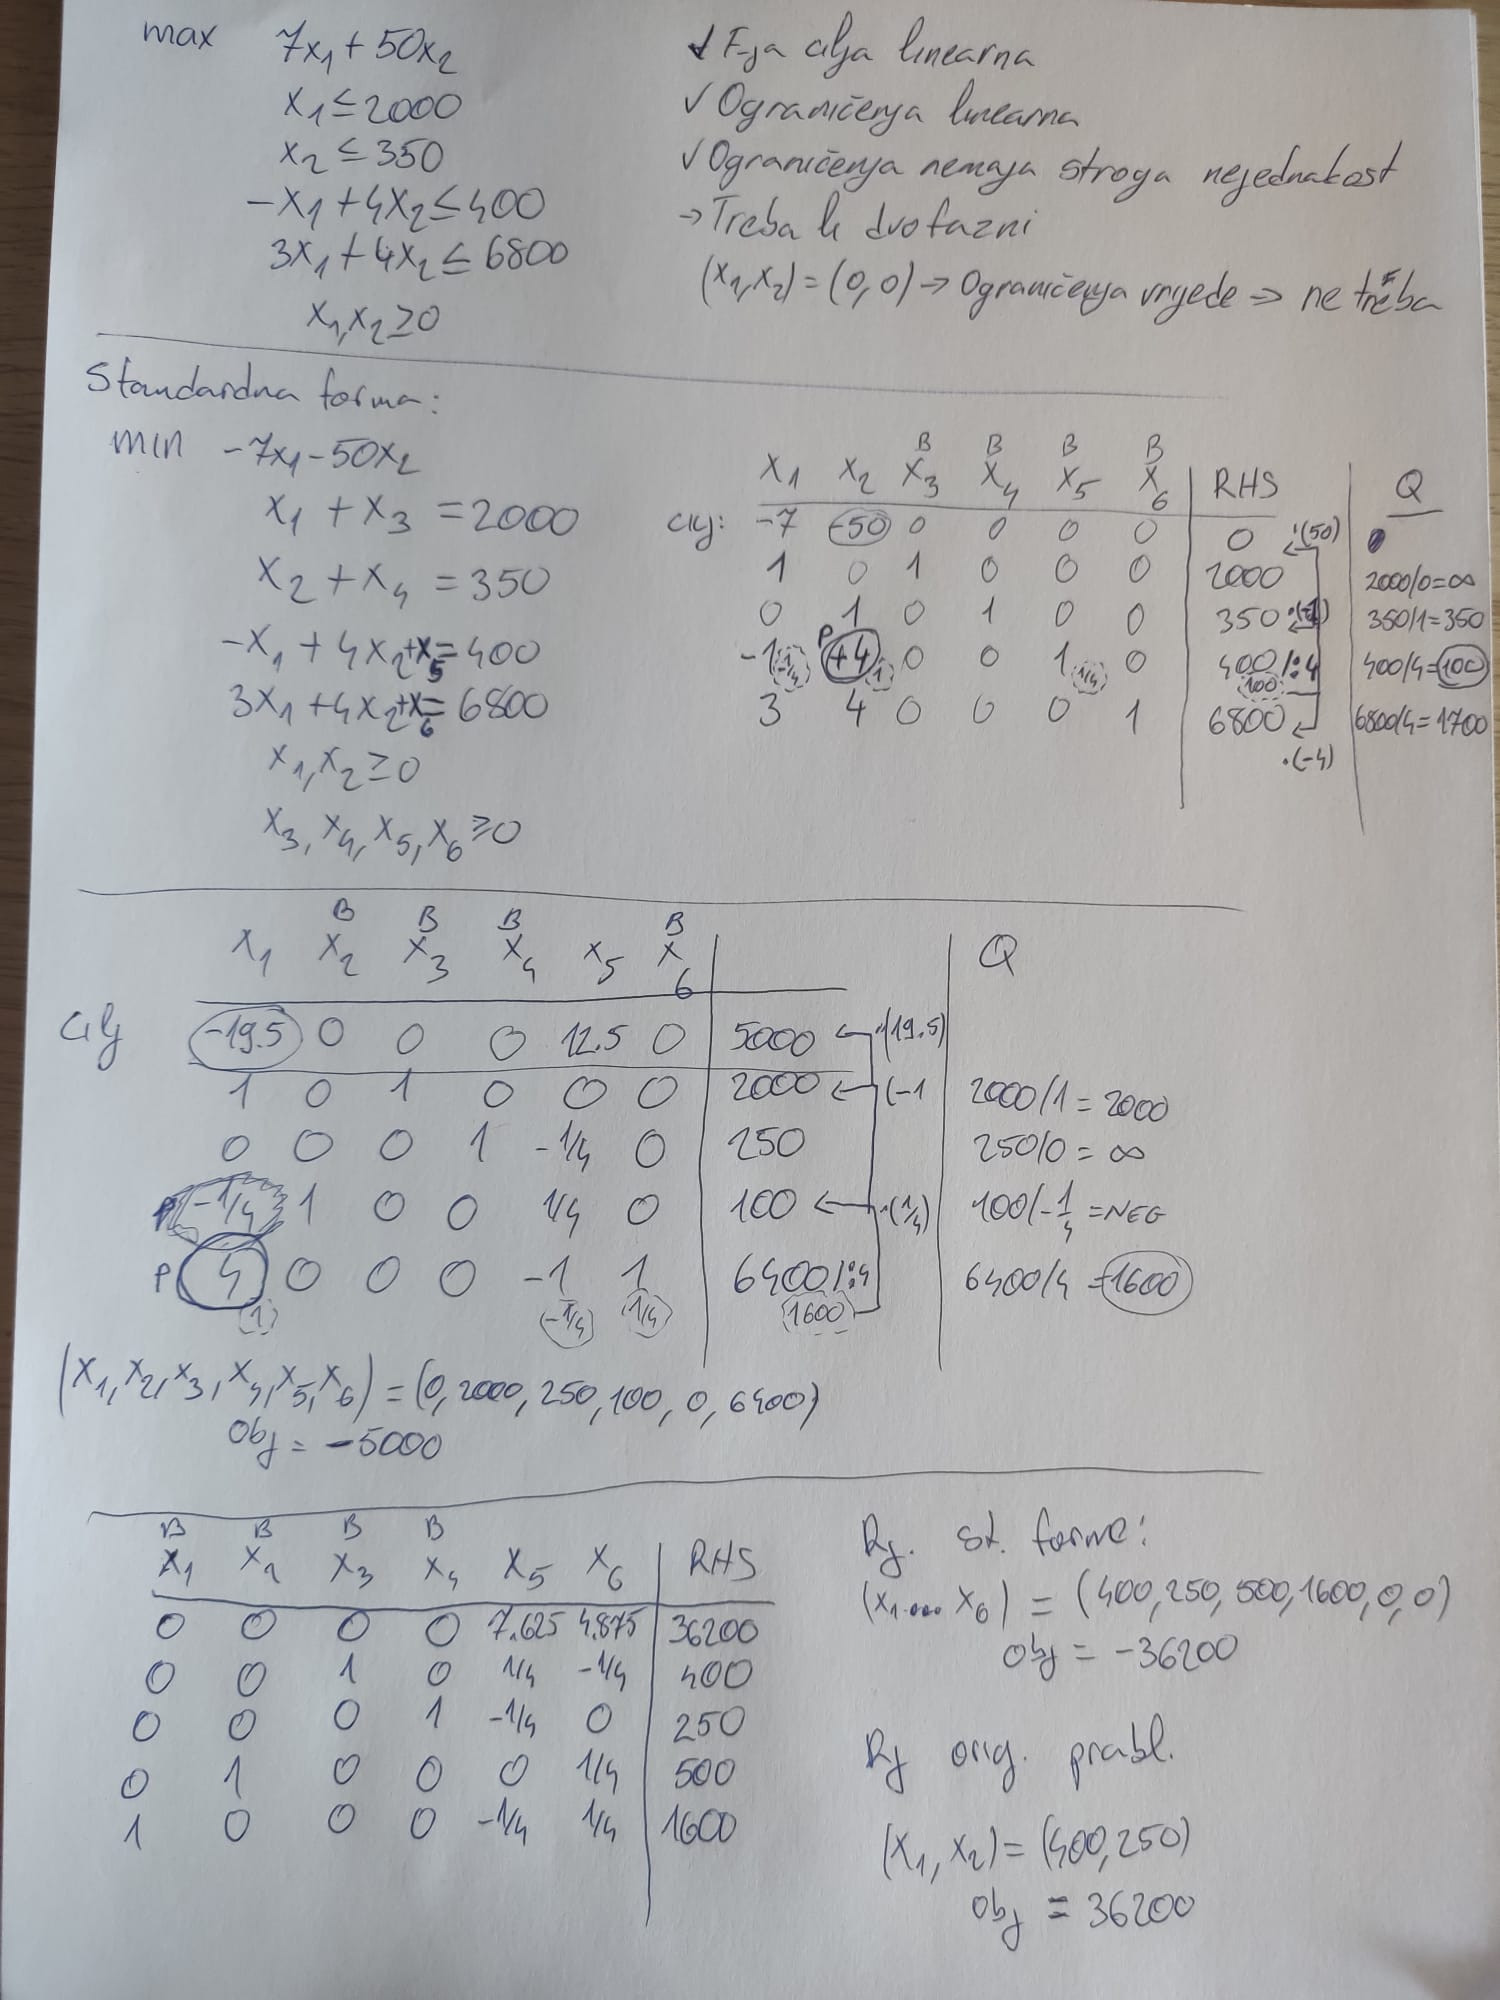 max 7x₁ + 50x₂
x₁ ≤ 2000
x₂ ≤ 350
-x₁ + 4x₂ ≤ 400
3x₁ + 4x₂ ≤ 6800
x₁, x₂ ≥ 0
✓ F-ja cilja linearna
✓ Ograničenja linearna
✓ Ograničenja nemaja stroga nejednakost
→ Treba li dvofazni
(x₁, x₂) = (0, 0) → Ograničenja vrijede → ne treba
Standardna forma:
min -7x₁ - 50x₂
x₁ + x₃ = 2000
x₂ + x₄ = 350
-x₁ + 4x₂ + x₅ = 400
3x₁ + 4x₂ + x₆ = 6800
x₁, x₂ ≥ 0
x₃, x₄, x₅, x₆ ≥ 0
B B B B
x₁ x₂ x₃ x₄ x₅ x₆ RHS Q
cilj: -7 -50 0 0 0 0 0 ·(50)
1 0 1 0 0 0 2000 2000/0 = ∞
0 1 0 1 0 0 350 ·(-1) 350/1 = 350
P
-1 -1/4 +4 1 0 0 1 1/4 0 400 /:4 100 400/4 = 100
3 4 0 0 0 1 6800 6800/4 = 1700
·(-4)
B B B B
x₁ x₂ x₃ x₄ x₅ x₆ Q
Cilj -19.5 0 0 0 12.5 0 5000 ·(19.5)
1 0 1 0 0 0 2000 (-1 2000/1 = 2000
0 0 0 1 -1/4 0 250 250/0 = ∞
P -1/4 1 0 0 1/4 0 100 ·(1/4) 100/-1/4 = NEG
P 4 0 0 0 -1 1 6400 /:4 6400/4 = 1600
1 -1/4 1/4 1600
(x₁, x₂, x₃, x₄, x₅, x₆) = (0, 2000, 250, 100, 0, 6400)
Obj = -5000
B B B B
x₁ x₂ x₃ x₄ x₅ x₆ RHS
0 0 0 0 7.625 4.875 36200
0 0 1 0 1/4 -1/4 400
0 0 0 1 -1/4 0 250
0 1 0 0 0 1/4 500
1 0 0 0 -1/4 1/4 1600
Rj. st. forme:
(x₁.... x₆) = (400, 250, 500, 1600, 0, 0)
Obj = -36200
Rj orig. probl.
(x₁, x₂) = (400, 250)
Obj = 36200